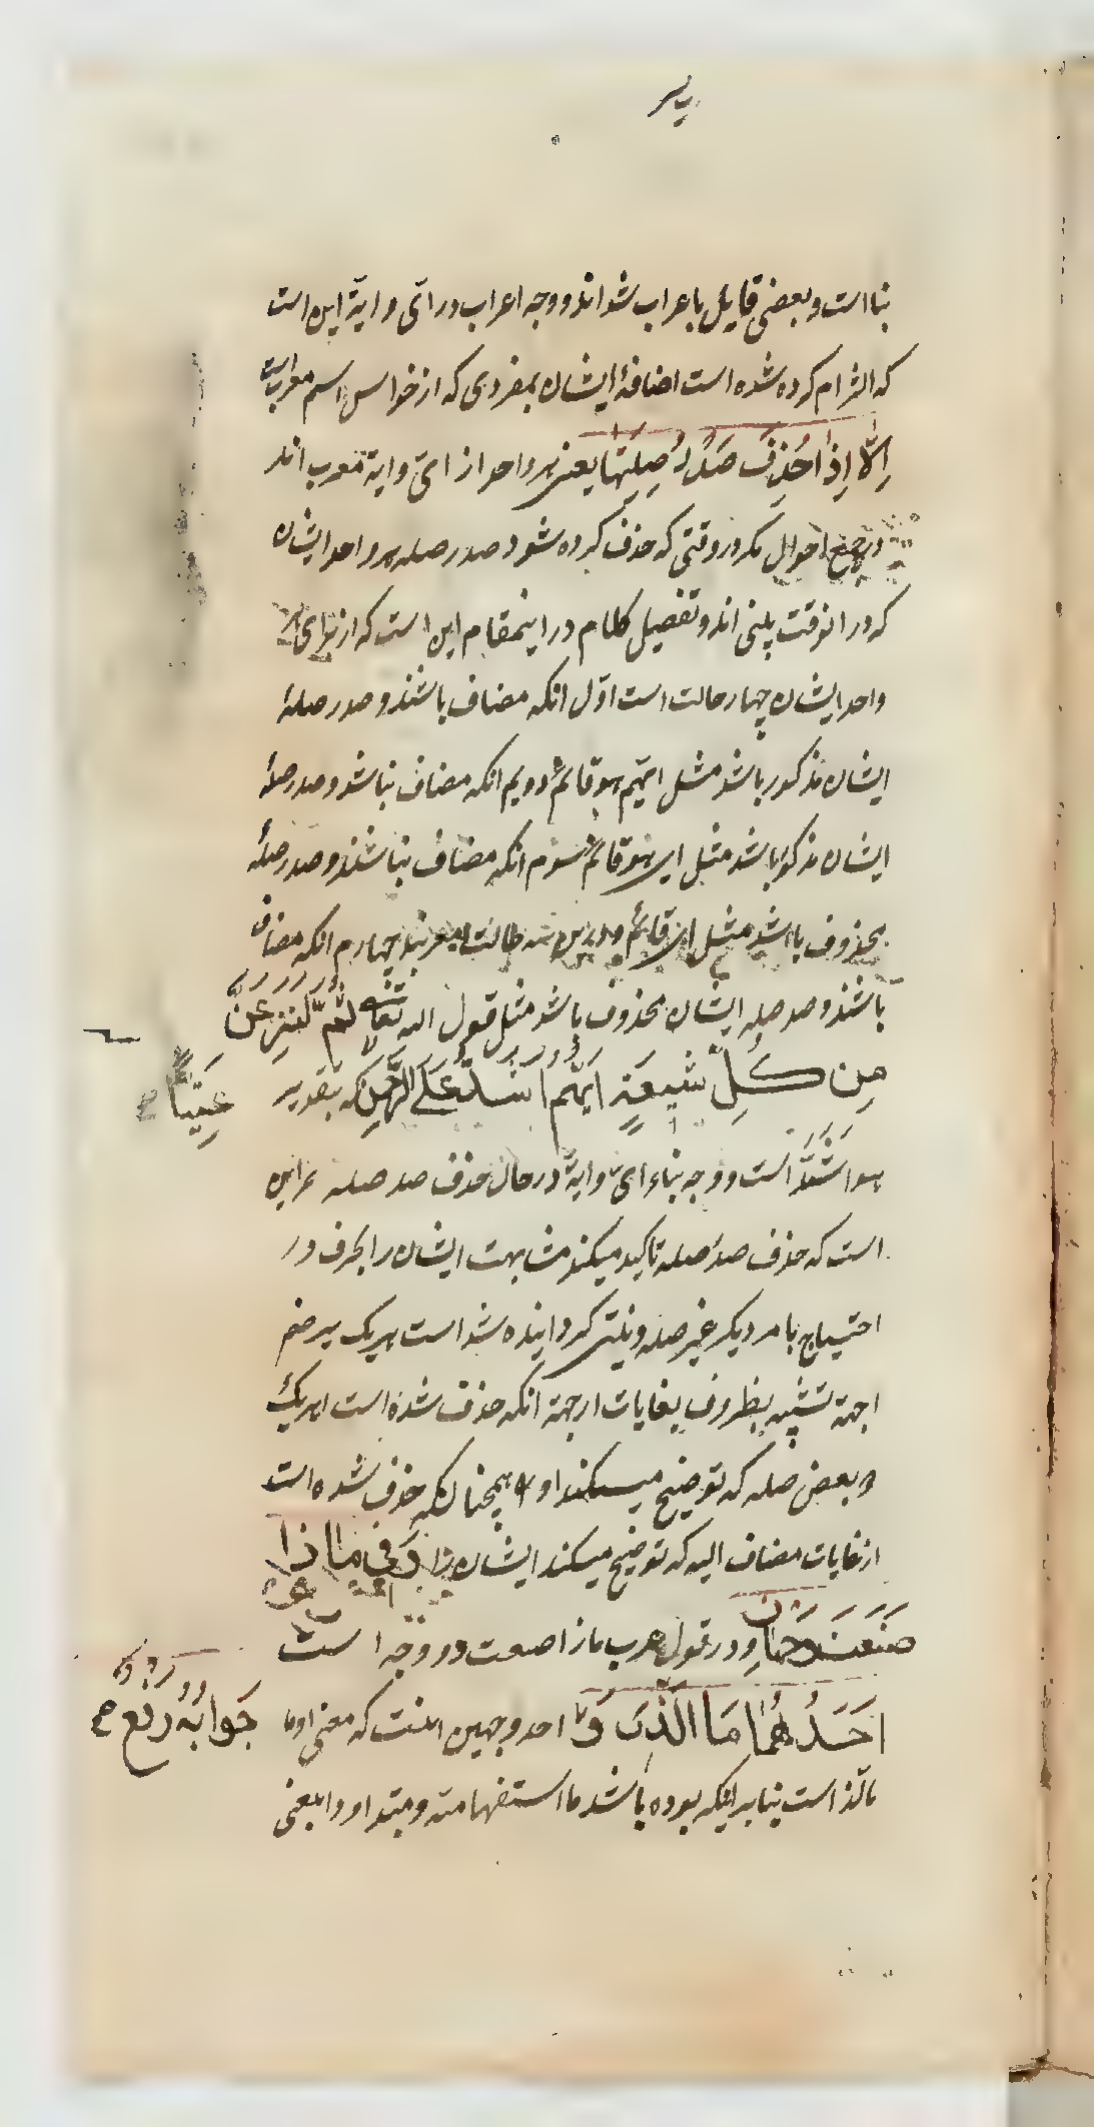 بنا است و بعضی قایل باعراب شده‌اند و وجه اعراب در ای و ایة این است
که الزام کرده شده است اضافهٔ ایشان بمفردی که از خواس اسم معرب است
اِلّا اِذا حُذِفَ صَدْرُ صِلَتِها یعنی هر واحد از ایّ و ایة معرب اند
در جمیع احوال مکر در وقتی که حذف کرده شود صدر صله هر واحد ایشان
که در انوقت مبنی اند و تفصیل کلام در اینمقام این است که از برای هر
واحد ایشان چهار حالت است اوّل انکه مضاف باشند و صدر صلهٔ
ایشان مذکور باشد مثل ایّهم هو قائم دویم انکه مضاف نباشد و صدر صلهٔ
ایشان مذکور باشد مثل ای هو قائم سوم انکه مضاف نباشند و صدر صلهٔ
محذوف باشد مثل ای قائم و درین سه حالت معربند چهارم انکه مضاف
باشند و صدر صله ایشان محذوف باشد مثل قول اله تعالی ثُمَّ لَنَنْزِعَنَّ
مِن كُلِّ شیعَةٍ ایّهم اَشَدُّ عَلَی الرَّحْمنِ که بتقدیر
عِتِیّاً صح
هو اشَدُّ است و وجه بناء ای و ایة در حال حذف صدر صله این
است که حذف صدر صله تاکید میکند مشابهت ایشان را بحرف در
احتیاج بامر دیکر غیر صله و مبنی کردانیده شد است هریک بر ضم
اجهة تشبیه بظروف بغایات ازجهة انکه حذف شده است هریک
و بعض صله که توضیح میکند او را همچنانکه حذف شده است
از غایات مضاف الیه که توضیح میکند ایشان را وَ فی ماذا
صَنَعْتَ وَجهانِ و در قول عرب ماذا صنعت دو وجه است
اَحَدُهُما مَا الَّذی احد وجهین انست که معنی او ما
وَ جَوابُهُ رَفْعٌ صح
مالذ است بنابر اینکه بوده باشد ما استفهامیه و مبتدا و ذا بمعنی